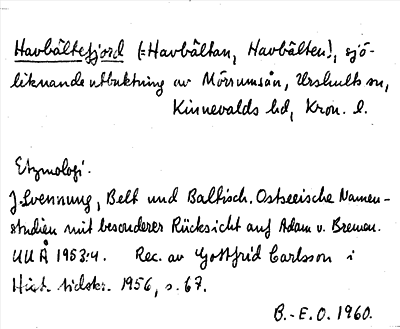 Havbältefjord (=Havbältan, Havbälten), sjö-
liknande utbuktning av Mörrumsån, Urshults sn,
Kinnevalds hd, Kron. l.
Etymologi.
J. Svennung, Belt und Baltisch. Ostseeische Namen-
studien mit besonderer Rücksicht auf Adam v. Bremen.
UUÅ 1953:4. Rec. av Gottfrid Carlsson i
Hist. tidskr. 1956, s. 67.
B.-E.O. 1960.